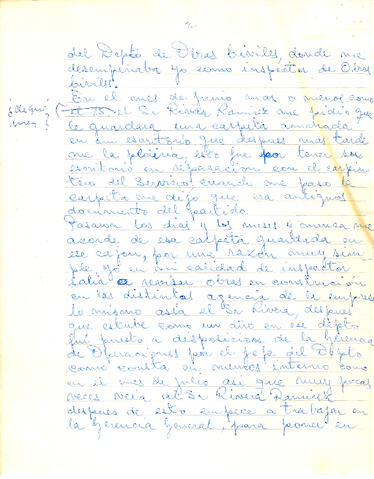 2
del Depto de Obras Civiles, donde me
desempeñaba yo como inspector de Obras
Civiles.
En el mes de junio mas o menos como
¿de qué mes? (el 15) el Sr Rivera Ramirez me pidio que
le guardara una carpeta amarilla
en un escritorio que despues mas tarde
me la pediria, esto fue por tener su
escritorio en reparacion con el carpin
tero del Servicio cuando me paso la
carpeta me dijo que era antiguos
documento del partido.
Pasaron los dias y los meses y nunca me
acorde de esa carpeta guardada en
ese cajon, por una razon muy sim
ple, yo en mi calidad de inspector
salia a revisar obras en construcción
en las distintas agencia de la empresa
lo mismo asia el Sr Rivera, despues
que estube como un año en ese depto
fui puesto a disposicion de la Gerencia
de Operaciones por el jefe del Depto
como consta en memos interno como
en el mes de julio asi que muy pocas
veces veia al Sr Rivera Ramirez
despues de esto empece a trabajar en
la Gerencia General, para poner en